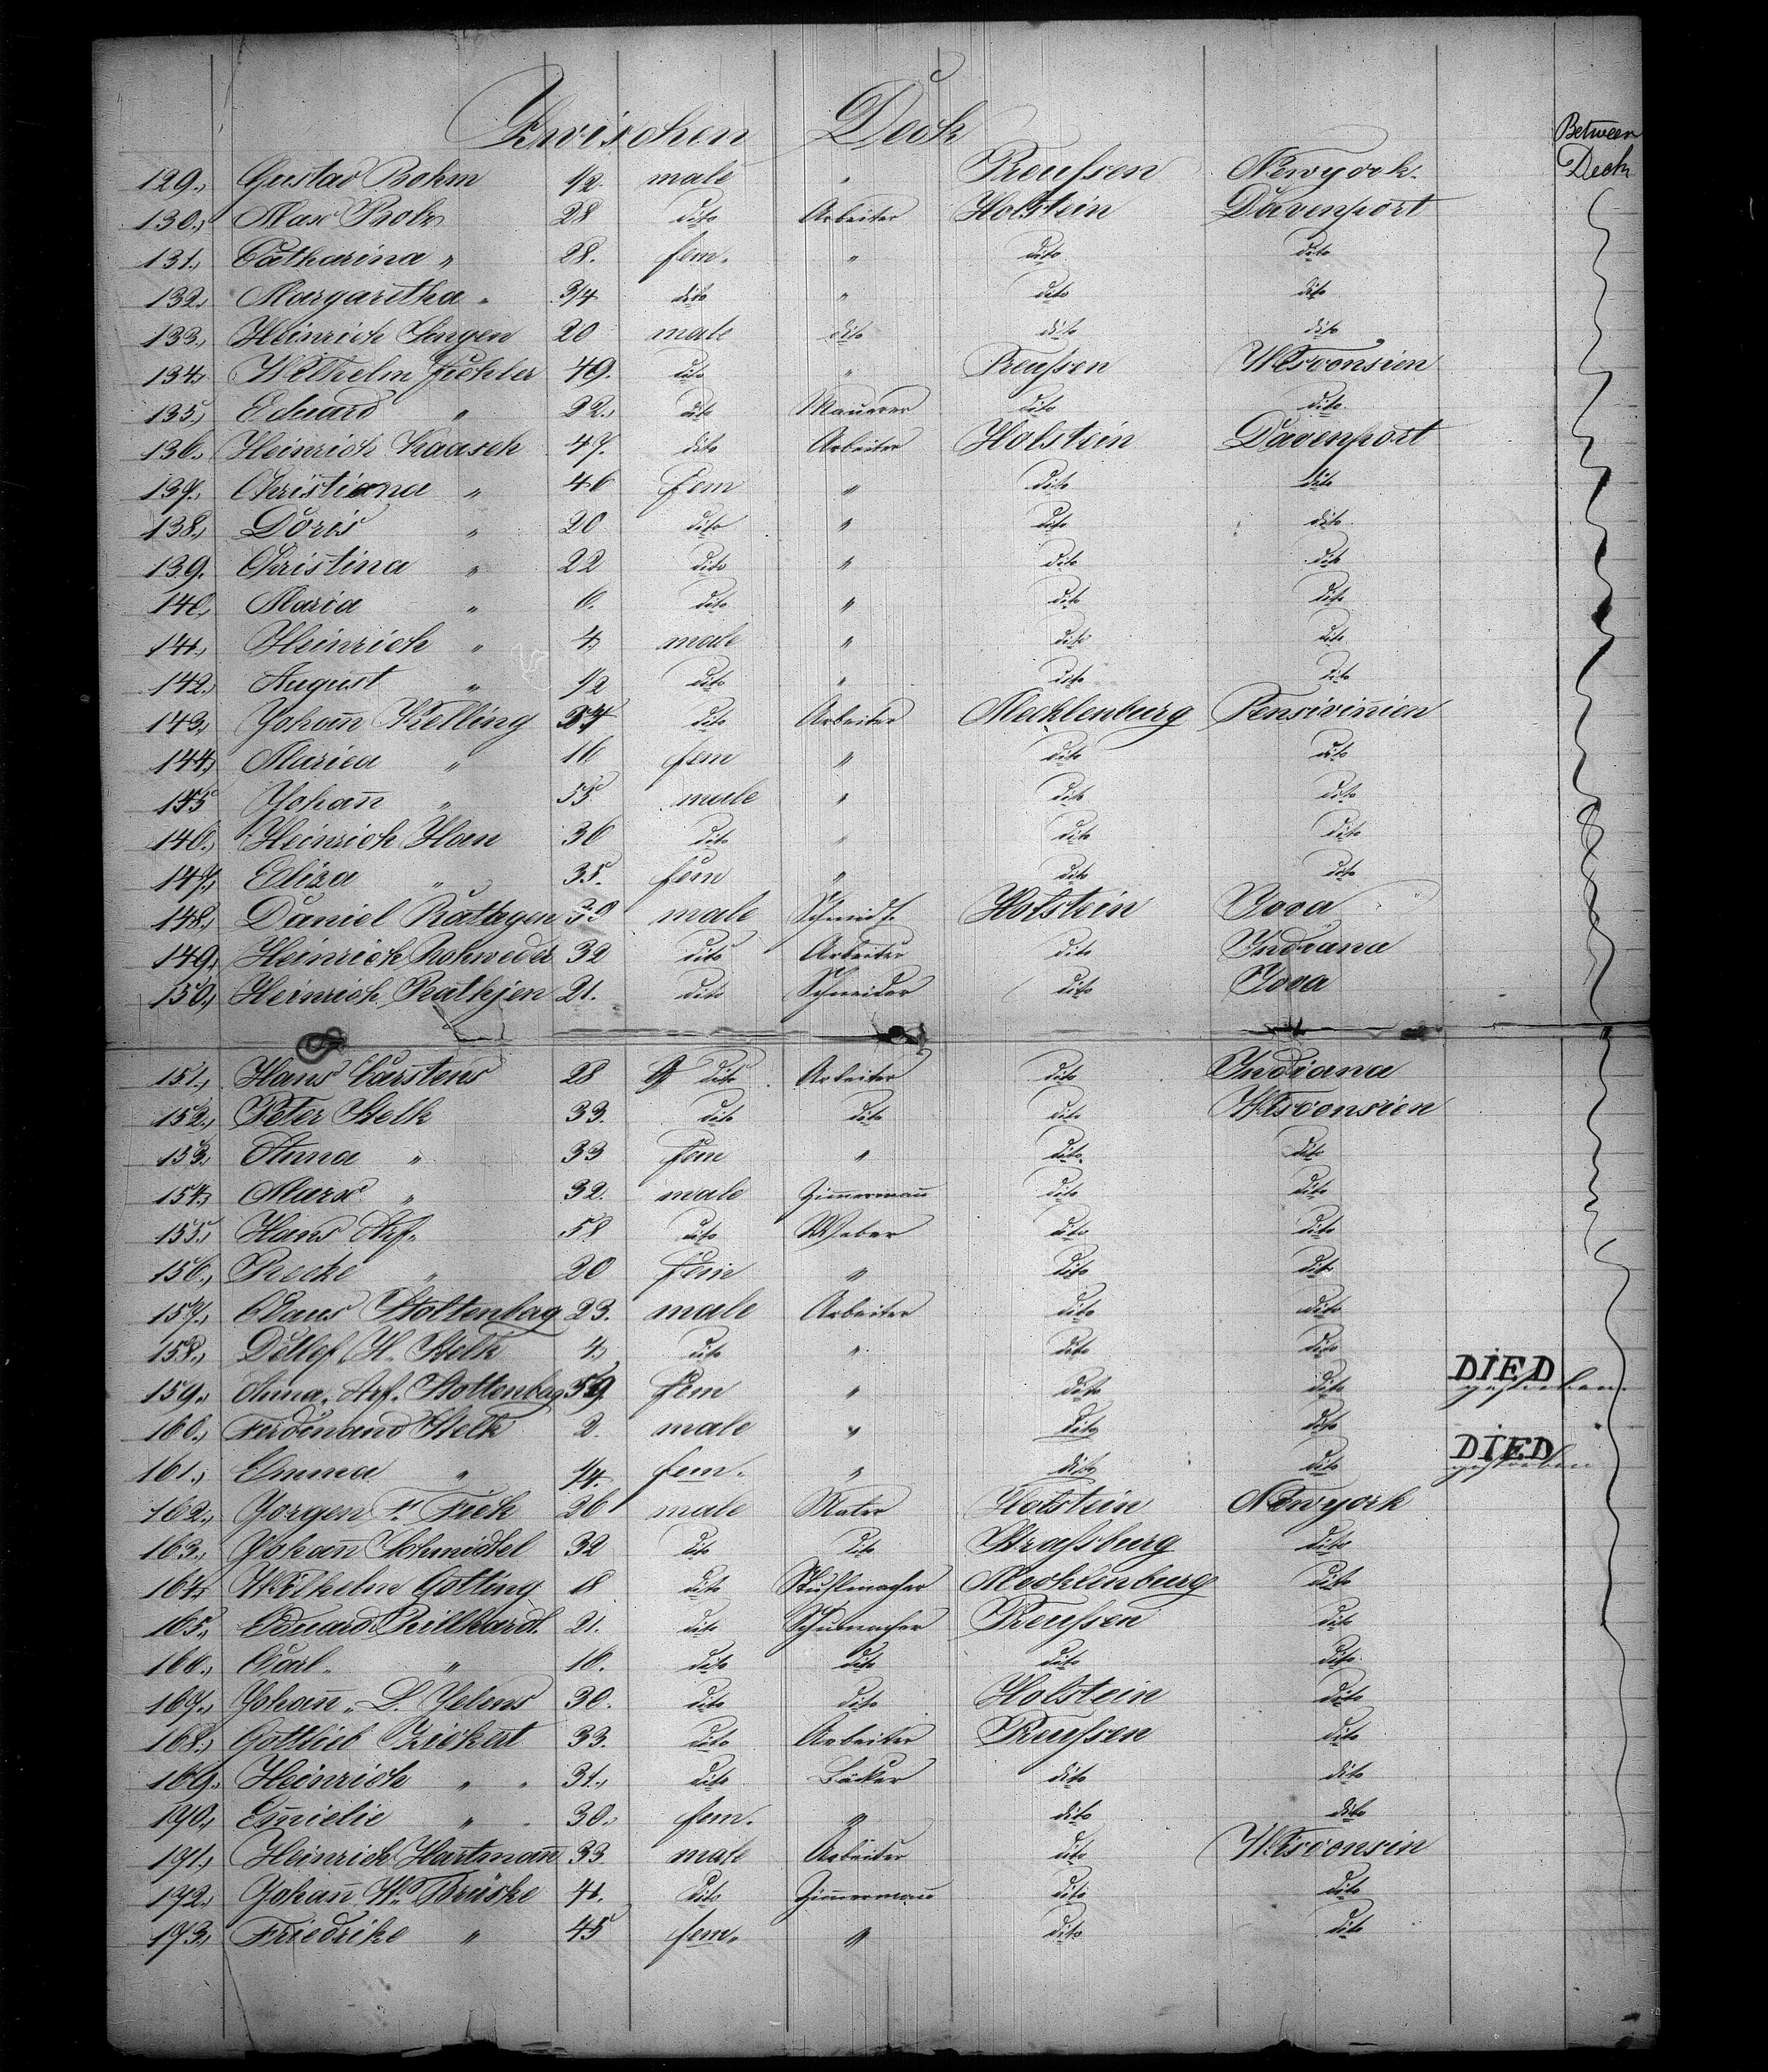 Zwischen Deck
Between Deck
129. Gustav Bohm 1/2 male " Preußen Newyork.
130. Max Rohr 28 dito Arbeiter Holstein Davenport
131. Catharina " 28. fem. " dito dito
132. Margaretha " 3/4 dito " dito dito
133. Heinrich Jurgen 20 male dito dito dito
134. Wilhelm Fichler 49. dito " Preußen Wisconsien
135. Eduard " 22. dito Maurer dito dito
136. Heinrich Kaasch 47. dito Arbeiter Holstein Davenport
137. Christiana " 46 fem " dito dito
138. Doris " 20 dito " dito dito
139. Christina " 22 dito " dito dito
140. Maria " 6. dito " dito dito
141. Heinrich " 4. male " dito dito
142. August " 1/2 dito " dito dito
143. Johan̄ Kelling dito Arbeiter Mecklenburg Pensivin̄ien
144. Mariea " 16 fem " dito dito
145 Johan̄ " 55 male " dito dito
146. Heinrich Han 36 dito " dito dito
147. Eliza " 35. fem " dito dito
148. Daniel Rathgen 30 male Schmidt. Holstein Iova
149. Heinrich Rohweder 32 dito Arbeiter dito Indiana
150. Heinrich Rathjen 21. dito Schneider dito Iova
151. Hans Carstens 28 dito Arbeiter dito Indiana
152. Peter Stelk 33. dito dito dito Wisconsien
153. Anna " 33 fem " dito dito
154. Marx " 32. male Zimmermann dito dito
155. Hans Arf. 58 dito Weber dito dito
156. Recke " 20 fem " dito dito
157. Claus Stoltenbag 23. male Arbeiter dito dito
158. Detlef H. Stelk 4. dito " dito dito
159. Anna. Arf. Stoltenbag 59 fem " dito dito DIED gestorben.
160. Ferdinand Stelk 2. male " dito dito
161. Emma " 1/4. fem. " dito dito DIED gestorben
162. Jorgen F. Fick 26 male Maler Holstein Newyork
163. Johan̄ Schmidtel 32 dito dito Straßburg dito
164. Wilhelm Gotting 18 dito Stuhlmacher Mecklenburg dito
165. Eduard Rillhardt. 21. dito Schumacher Preußen dito
166. Carl. " 16. dito dito dito dito
167. Johan̄. D. Jelens 30. dito dito Holstein dito
168. Gottlieb Zickert 33. dito Arbeiter Preußen dito
169. Heinrich " 31. dito Bäcker dito dito
170. Em̄ielie " 30. fem. " dito dito
171. Heinrich Hartman̄ 33 male Arbeiter dito Wisconsin
172. Johan̄ W. Brüske 41. dito Zimmermann dito dito
173. Friedrike " 45 fem. " dito dito